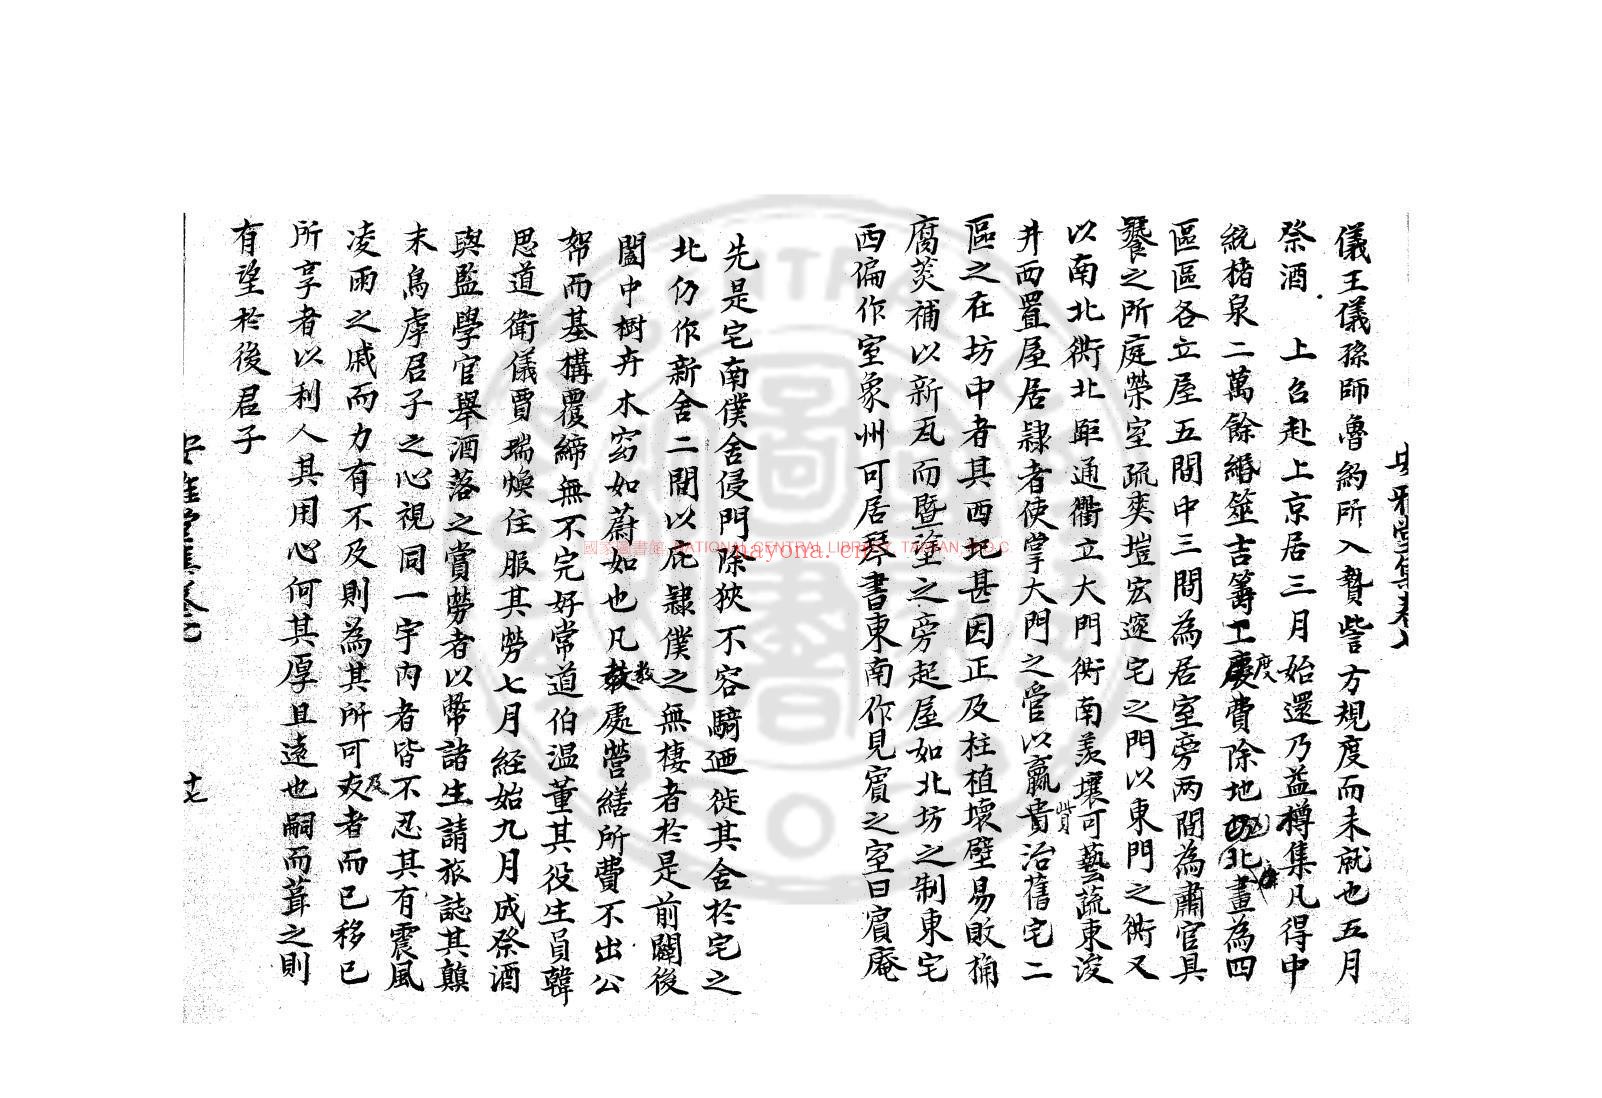 安雅堂集卷八
儀王儀孫師魯約所入贄訾方規度而未就也五月
祭酒 上召赴上京居三月始還乃益樽集凡得中
統楮泉二萬餘緡筮吉籌工度費除地坊北畫為四
區區各立屋五間中三間為居室旁两間為肅官具
饔之所庭榮室疏奕塏宏邃宅之門以東門之衖又
以南北衖北距通衢立大門衖南羨壤可藝蔬東浚
井西置屋居隸者使掌大門之管以羸貲治舊宅二
區之在坊中者其西地甚因正及柱植壞壁易敗桷
腐茭補以新瓦而暨塗之旁起屋如北坊之制東宅
西偏作室象州可居琴書東南作見賓之室曰賓庵
先是宅南僕舍侵門除狹不容騎迺徙其舍於宅之
北仍作新舍二間以庇隸僕之無棲者於是前闢後
闔中樹卉木窈如蔚如也凡教處營繕所費不出公
帑而基構覆締無不完好常道伯温董其役生員韓
思道衛儀賈瑞煥住服其勞七月経始九月成祭酒
與監學官舉酒落之賞勞者以幣諸生請旅誌其顛
末烏虖君子之心視同一宇內者皆不忍其有震風
凌雨之戚而力有不及則為其所可及者而已移已
所享者以利人其用心何其厚且遠也嗣而葺之則
有望於後君子
安雅堂集卷七
十七
國家圖書館 NATIONAL CENTRAL LIBRARY, TAIWAN, R.O.C.